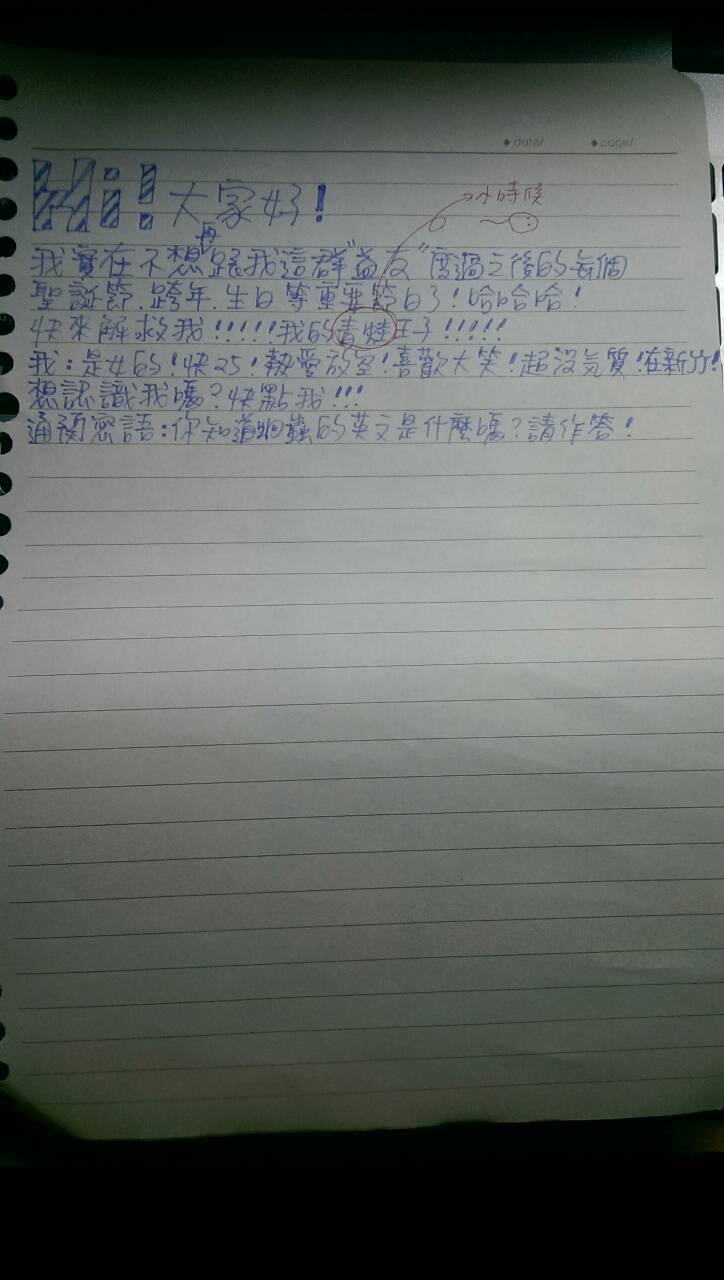 date/ page/
Hi! 大家好!
小時候
我實在不想再跟我這群"益友"度過之後的每個
聖誕節.跨年.生日等重要節日了!哈哈哈!
快來解救我!!!!!我的青蛙王子!!!!!
我:是女的!快25!熱愛放空!喜歡大笑!超沒気質!在新竹!
想認識我嗎?快點我!!!
通關密語:你知道蛔蟲的英文是什麼嗎?請作答!